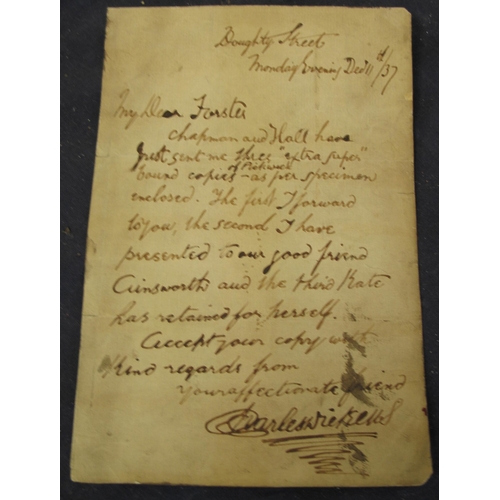 Doughty Street
Monday Evening Decr 11th/37
My Dear Forster
Chapman and Hall have
just sent me three "extra super"
of Pickwick
bound copies - as per specimen
enclosed. The first I forward
to you, the second I have
presented to our good friend
Ainsworth and the third Kate
has retained for herself.
Accept your copy with
kind regards from
your affectionate friend
Charles Dickens